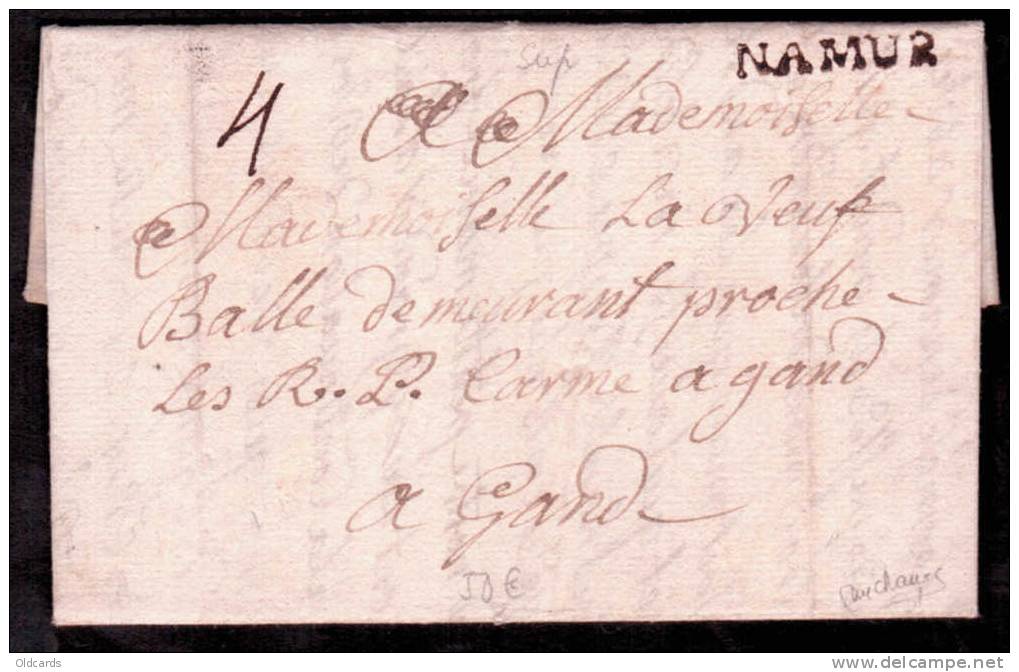 NAMUR
Sup
4 A Mademoiselle
Mademoiselle La veuf
Balle demeurant proche
Les R. P. Carme a gand
a Gand
50 €
Oldcards
www.delcampe.net